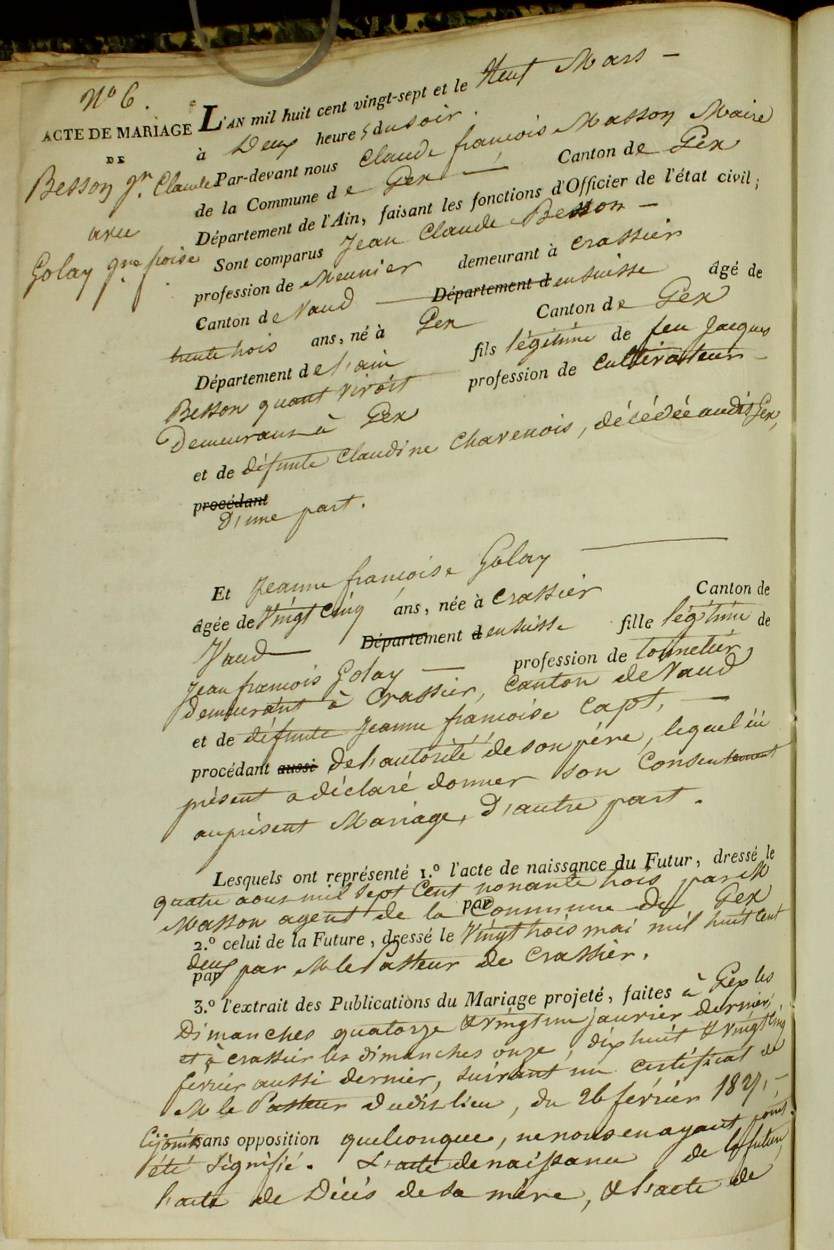 N.o 6.
ACTE DE MARIAGE
DE
Besson Jn. Claude
avec
Golay Jne. foise
L'AN mil huit cent vingt-sept et le Neuf Mars
à Deux heures du soir.
Par-devant nous Claude françois Masson Maire
de la Commune de Gex Canton de Gex
Département de l'Ain, faisant les fonctions d'Officier de l'état civil;
Sont comparus Jean Claude Besson
profession de Meunier demeurant à Crassier
Canton de Vaud Département d en Suisse âgé de
trente trois ans, né à Gex Canton de Gex
Département de l'ain fils légitime de feu Jacques
Besson quant vivoit profession de Cultivateur
Demeurant à Gex
et de défunte Claudine Chavenois, décédée audit Gex,
procédant
D'une part.
Et Jeanne françoise Golay
âgée de Vingt Cinq ans, née à Crassier Canton de
Vaud Département d en Suisse fille légitime de
Jean françois Golay profession de tonnelier
Demeurant à Crassier, Canton de Vaud
et de défunte Jeanne françoise Capt,
procédant aussi De l'autorité de son père, lequel ici
présent a déclaré donner son Consentement
au présent Mariage, D'autre part.
Lesquels ont représenté 1.º l'acte de naissance du Futur, dressé le
quatre aout mil sept Cent nonante trois par M
par
Masson agent de la Commune de Gex
2.º celui de la Future, dressé le Vingt trois mai mil huit Cent
deux par M le Pasteur de Crassier.
par
3.º l'extrait des Publications du Mariage projeté, faites à Gex les
Dimanches quatorze & vingt un janvier dernier,
et à Crassier les dimanches onze, dix huit & vingt cinq
février aussi dernier, suivant un certificat de
M le Pasteur dudit lieu, du 26 février 1827,
Cijoint sans opposition quelconque, ne nous en ayant point
été Signifié. L'acte de naissance de la future,
l'acte de Décès de sa mère, & l'acte de